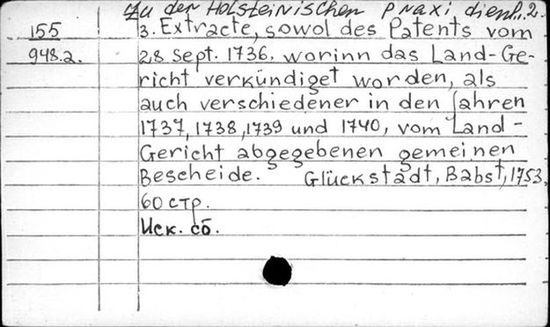 Zu der Holsteinischen Praxi dienl., 2.
155 3. Extracte, sowol des Patents vom
948.2. 28 Sept. 1736. worinn das Land-Ge-
richt verkündiget worden, als
auch verschiedener in den Jahren
1737, 1738, 1739 und 1740, vom Land-
Gericht abgegebenen gemeinen
Bescheide. Glückstadt, Babst, 1753.
60 стр.
Иск. сб.